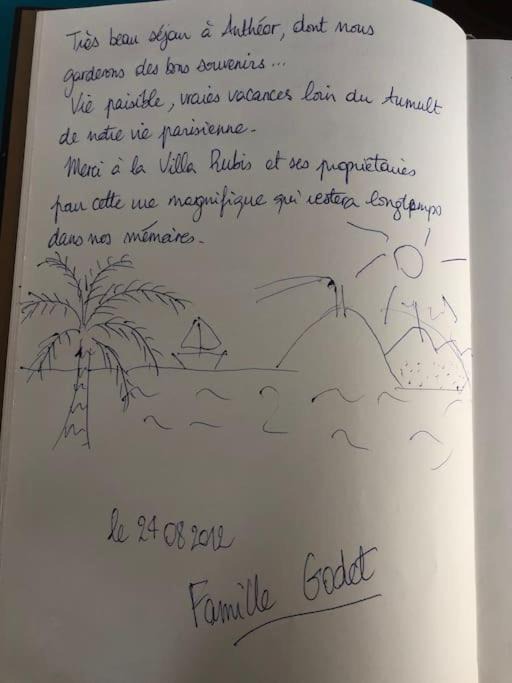 Très beau séjour à Anthéor, dont nous
garderons des bons souvenirs...
Vie paisible, vraies vacances loin du tumult
de notre vie parisienne.
Merci à la Villa Rubis et ses propriétaires
pour cette vue magnifique qui restera longtemps
dans nos mémoires.
le 24 08 2012
Famille Godet